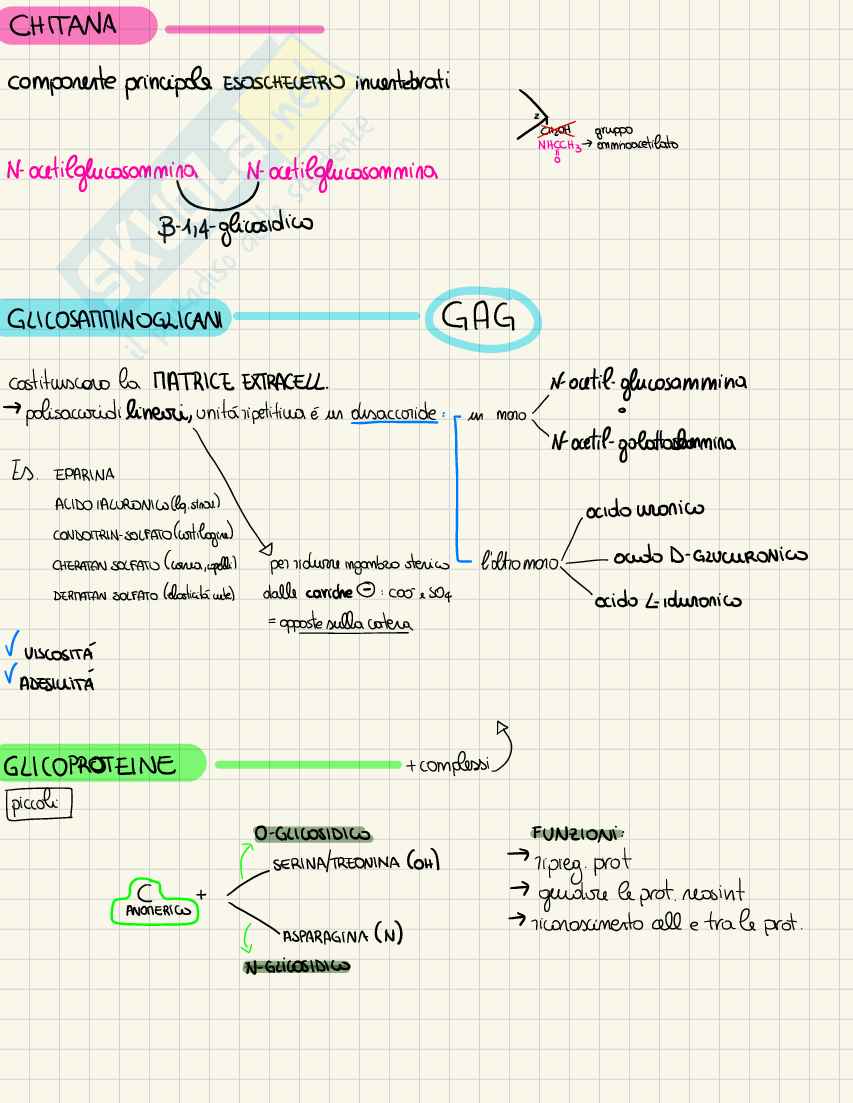 CHITANA
componente principale ESOSCHELETRO invertebrati
2
CH2OH
NHCCH3 → gruppo
amminoacetilato
O
N-acetilglucosammina N-acetilglucosammina
β-1,4-glicosidico
GLICOSAMMINOGLICANI GAG
costituiscono la MATRICE EXTRACELL.
→ polisaccaridi lineari, unità ripetitiva é un disaccaride: un mono
N-acetil-glucosammina
o
N-acetil-galattosammina
Es. EPARINA
ACIDO IALURONICO (liq. sinov)
CONDOITRIN-SOLFATO (cartilagine)
CHERATAN SOLFATO (cornea, capelli)
DERMATAN SOLFATO (elasticità cute)
per ridurre ingombro sterico
dalle cariche ⊖: COO⁻ e SO4
= opposte sulla catena
l'altro mono
acido uronico
acido D-GLUCURONICO
acido L-iduronico
✓ VISCOSITÁ
✓ ADESIVITÁ
GLICOPROTEINE + complessi
piccoli
O-GLICOSIDICO
SERINA/TREONINA (OH)
C +
ANOMERICO
ASPARAGINA (N)
N-GLICOSIDICO
FUNZIONI:
→ ripieg. prot
→ guidare le prot. neosint
→ riconoscimento cell e tra le prot.
SKUOLA.net